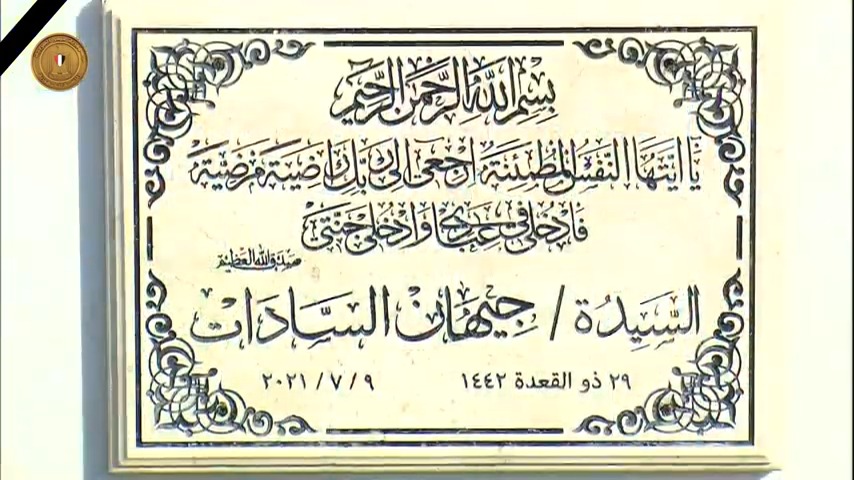 بسم الله الرحمن الرحيم
يا أيتها النفس المطمئنة ارجعي إلى ربك راضية مرضية
فادخلي في عبادي وادخلي جنتي
صدق الله العظيم
السيدة / جيهان السادات
٢٩ ذو القعدة ١٤٤٢ ٢٠٢١ / ٧ / ٩